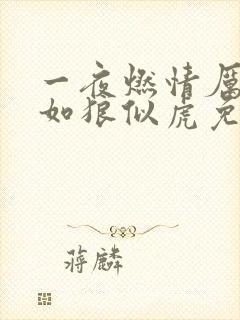 一夜燃情厉
如狼似虎免
蒋麟